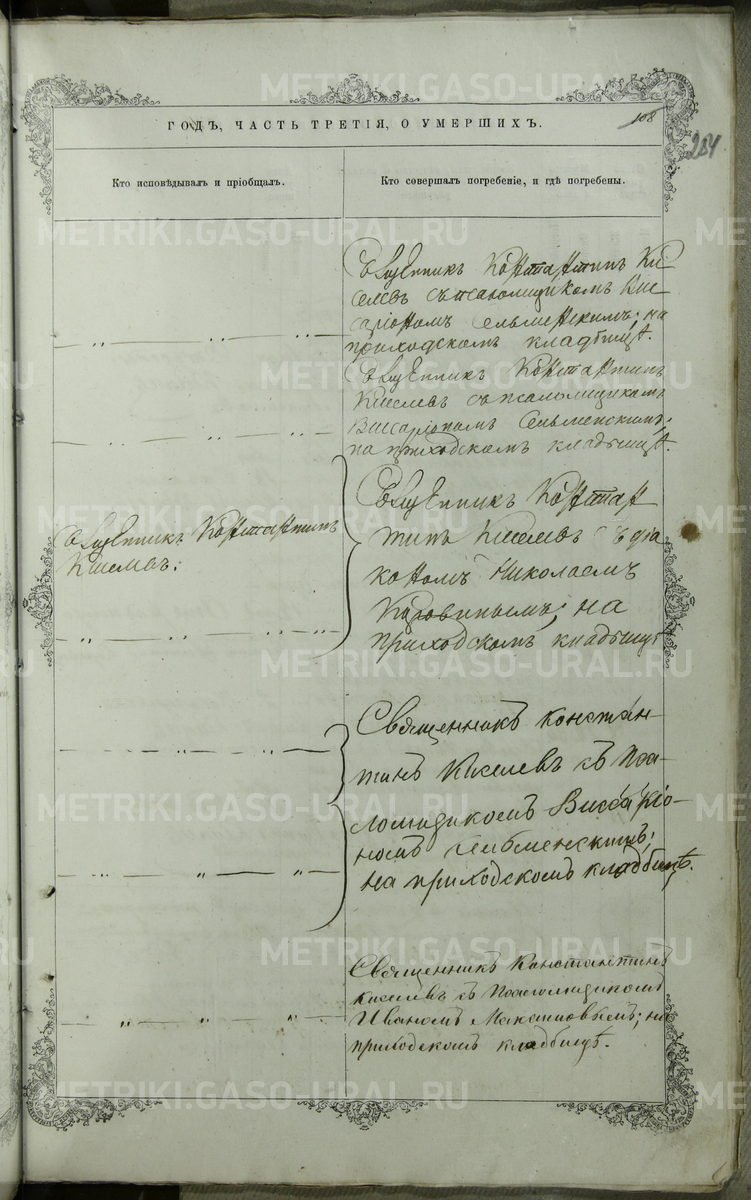 ГОДЪ, ЧАСТЬ ТРЕТІЯ, О УМЕРШИХЪ.
108
204
Кто исповѣдывалъ и пріобщалъ.
Кто совершалъ погребеніе, и гдѣ погребены.
Священникъ Константинъ Ки
селевъ съ псаломщикомъ Вис
саріономъ Сельменскимъ; на
приходскомъ кладбищѣ.
Священникъ Константинъ
Киселевъ съ псаломщикомъ
Виссаріономъ Сельменскимъ;
на приходскомъ кладбищѣ.
Священникъ Константинъ
Киселевъ.
Священникъ Констан
тинъ Киселевъ съ діа
кономъ Николаемъ
Коровинымъ; на
приходскомъ кладбищѣ
Священникъ Констан-
тинъ Киселевъ съ Пса-
ломщикомъ Виссаріо-
номъ Сельменскимъ;
на приходскомъ кладбищѣ.
Священникъ Константинъ
Киселевъ съ Псаломщикомъ
Иваномъ; на
приходскомъ кладбищѣ.
METRIKI.GASO-URAL.RU